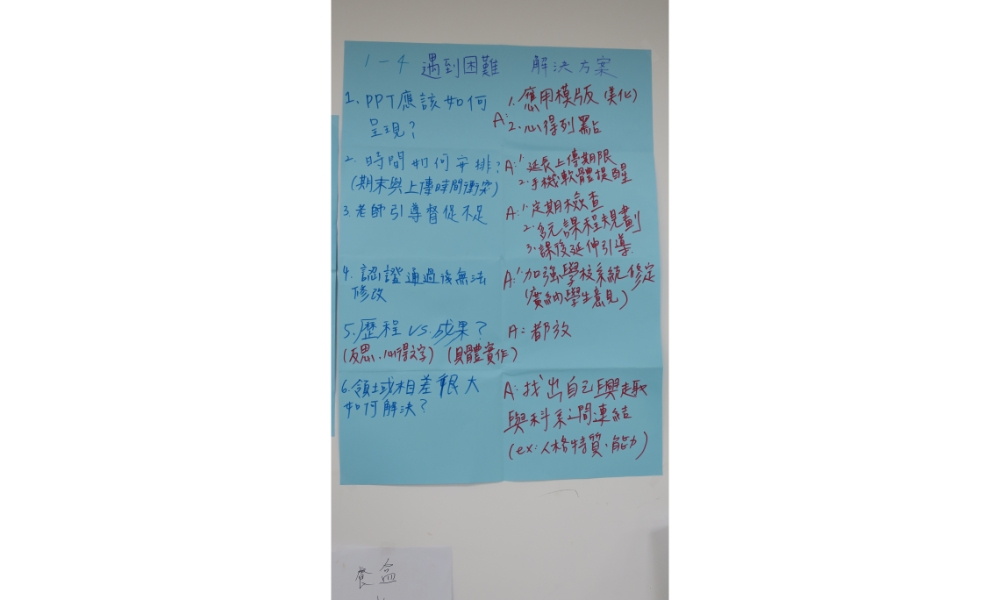 1-4 遇到困難 解決方案
1. PPT應該如何
呈現?
A: 1. 應用模版(美化)
2. 心得列點
2. 時間如何安排?
(期末與上傳時間衝突)
A: 1. 延長上傳期限
2. 手機軟體提醒
3 老師引導督促不足
A: 1. 定期檢查
2. 多元課程規劃
3. 課後延伸引導
4. 認證通過後無法
修改
A: 1. 加強學校系統修定
(廣納學生意見)
5. 歷程 VS 成果?
(反思、心得文字) (具體實作)
A: 都放
6. 領域相差很大
如何解決?
A: 找出自己興趣
與科系之間連結
(ex: 人格特質、能力)
餐盒